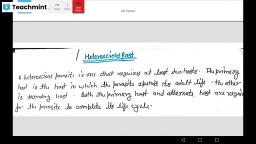 Teachmint
Heteroecious Host
A heteroecious parasite is one that requires at least two hosts. The primary
host is the host in which the parasite spends its adult life - the other
is secondary host. Both the primary host and alternate host are required
for the parasite to complete its life cycle.